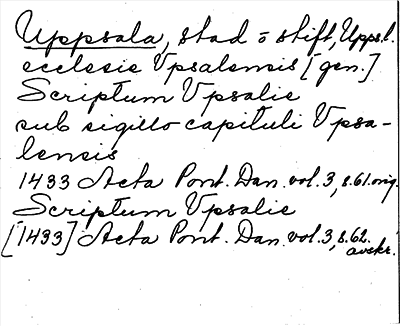 Uppsala, stad o stift, Uppl.
ecclesie Vpsalensis [gen.]
Scriptum Vpsalie
sub sigillo capituli Vpsa-
lensis
1433 Acta Pont. Dan. vol. 3, s. 61. orig.
Scriptum Vpsalie
[1433] Acta Pont. Dan. vol. 3, s. 62.
avskr.